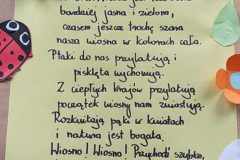 bardziej jasna i zielona,
czasem jeszcze trochę szara
nasza wiosna w kolorach cała.
Ptaki do nas przylatują i
pisklęta wychowują.
Z ciepłych krajów przylatują
początek wiosny nam zwiastują.
Rozkwitają pąki w kwiatach
i natura jest bogata.
Wiosno! Wiosno! Przychodź szybko,